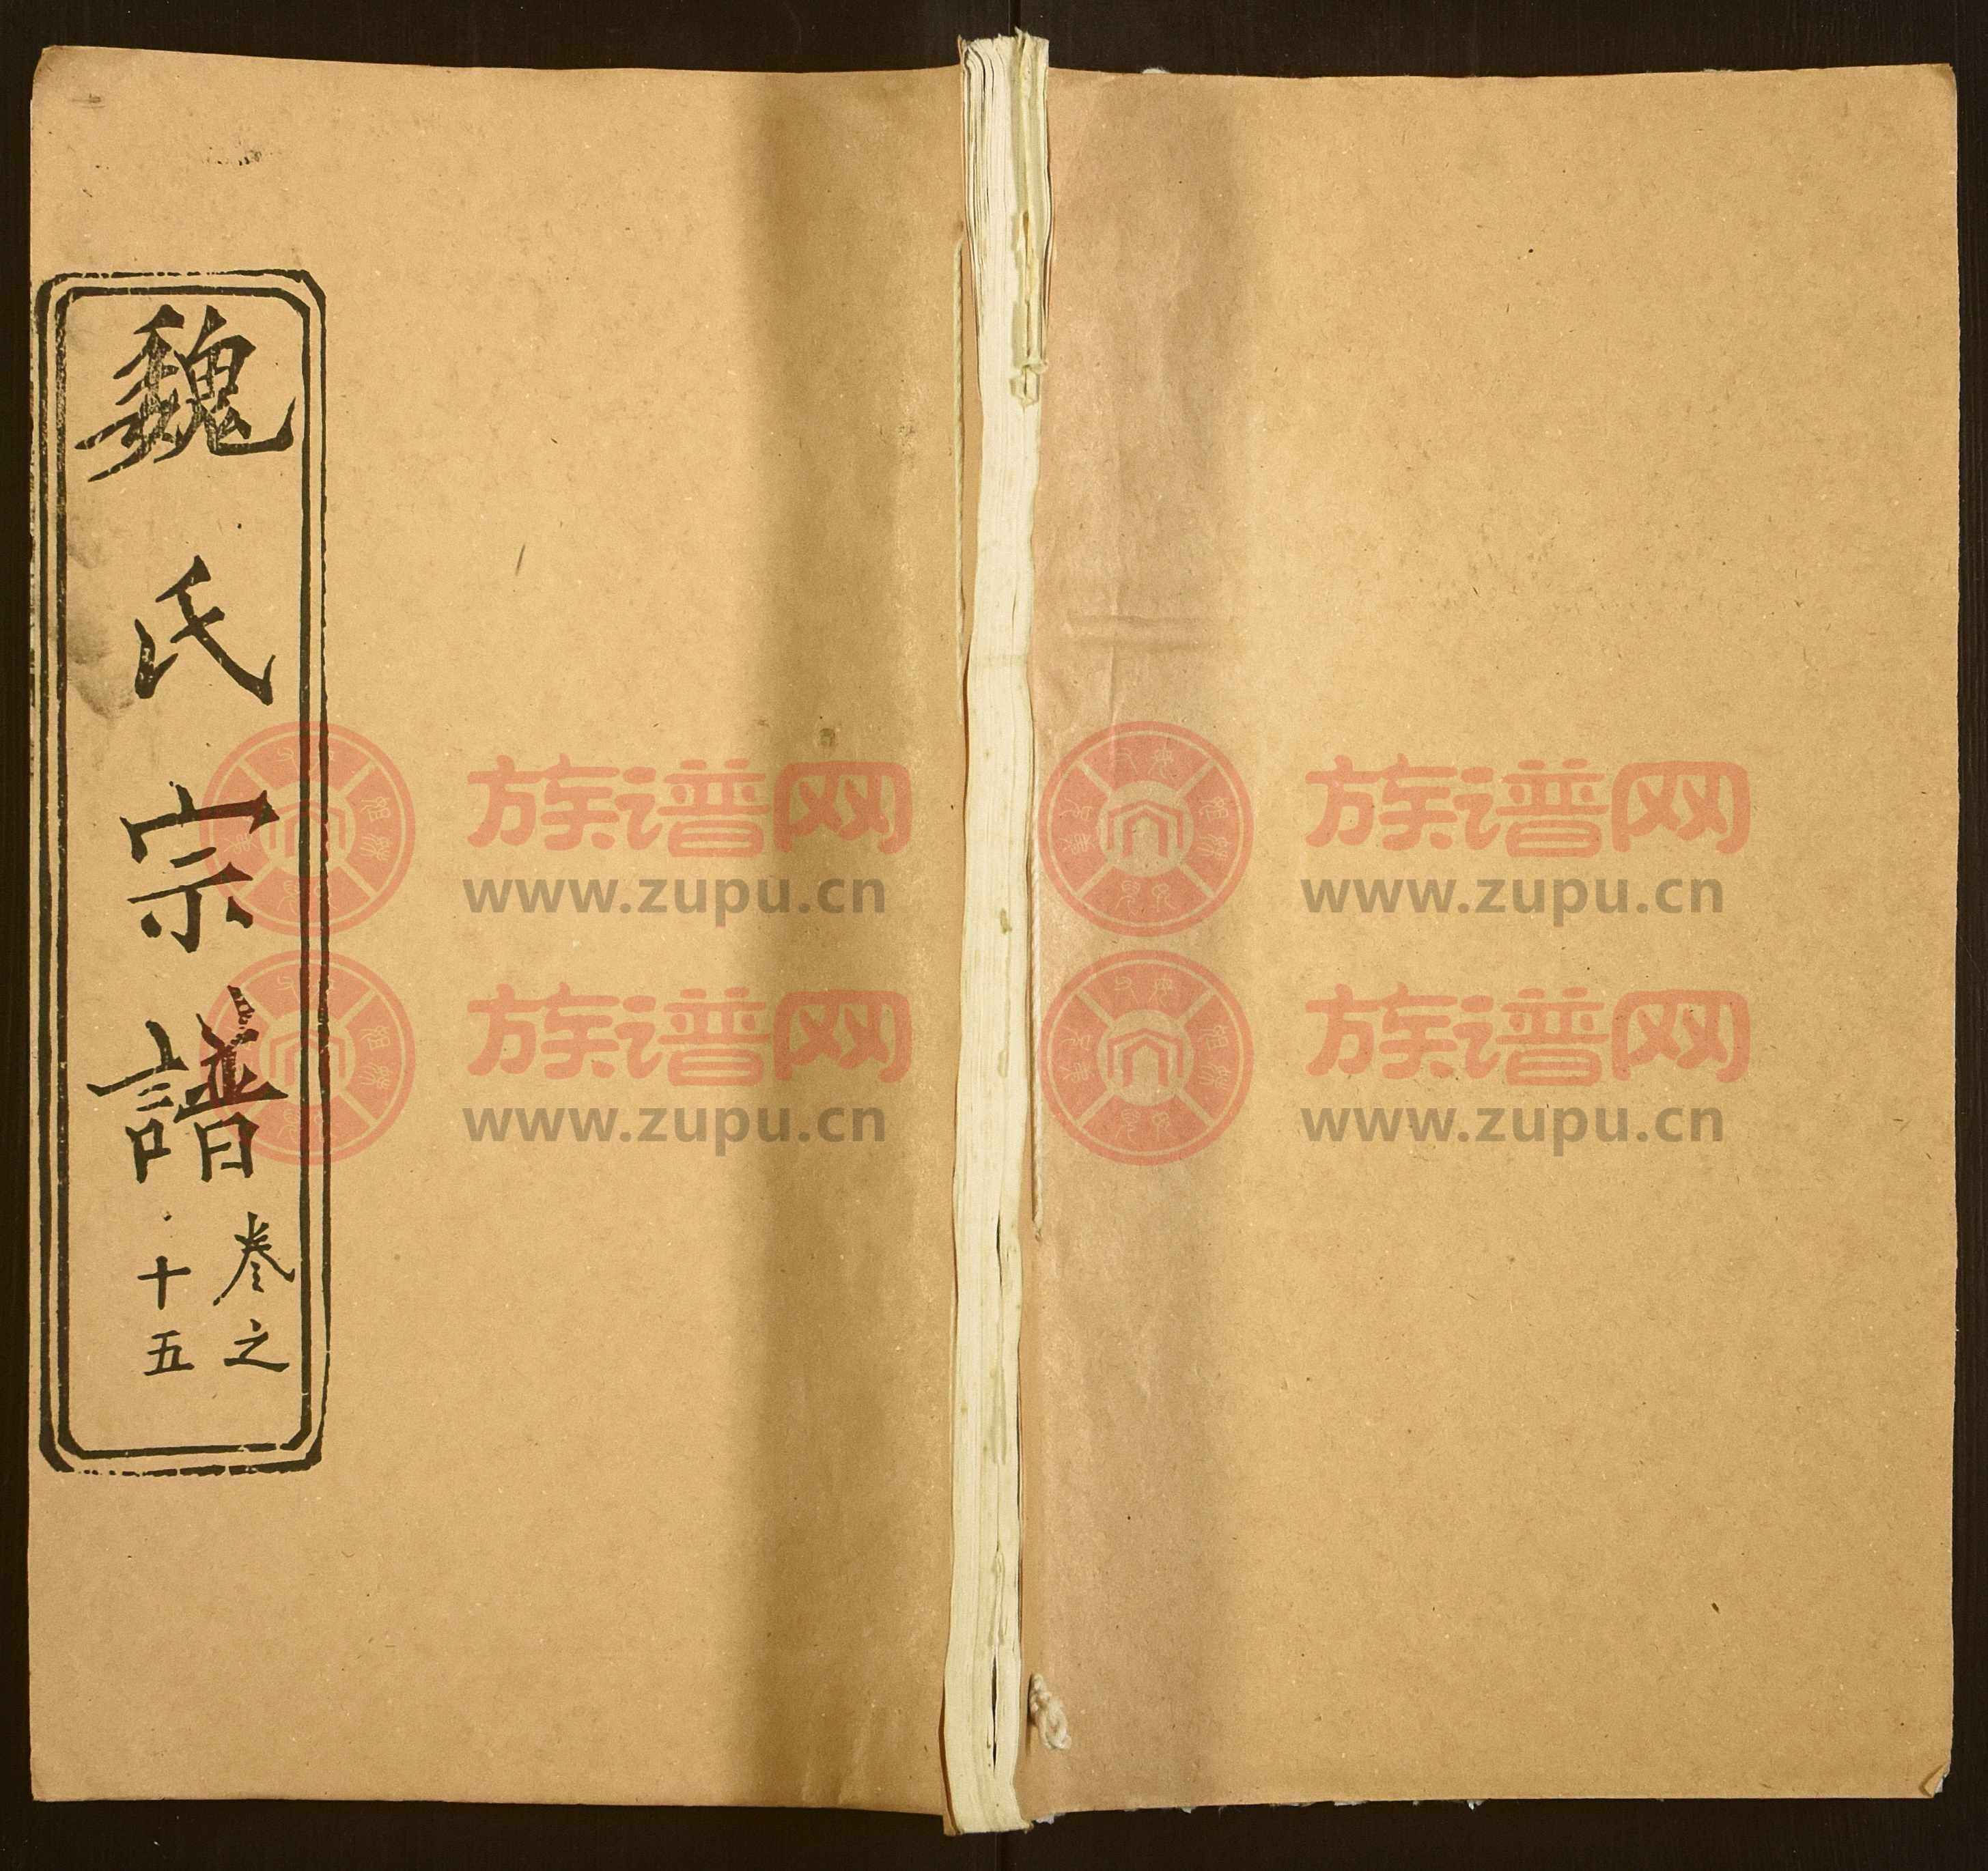 魏氏宗譜
卷之
十五
族谱网
www.zupu.cn
族谱网
www.zupu.cn
族谱网
www.zupu.cn
族谱网
www.zupu.cn